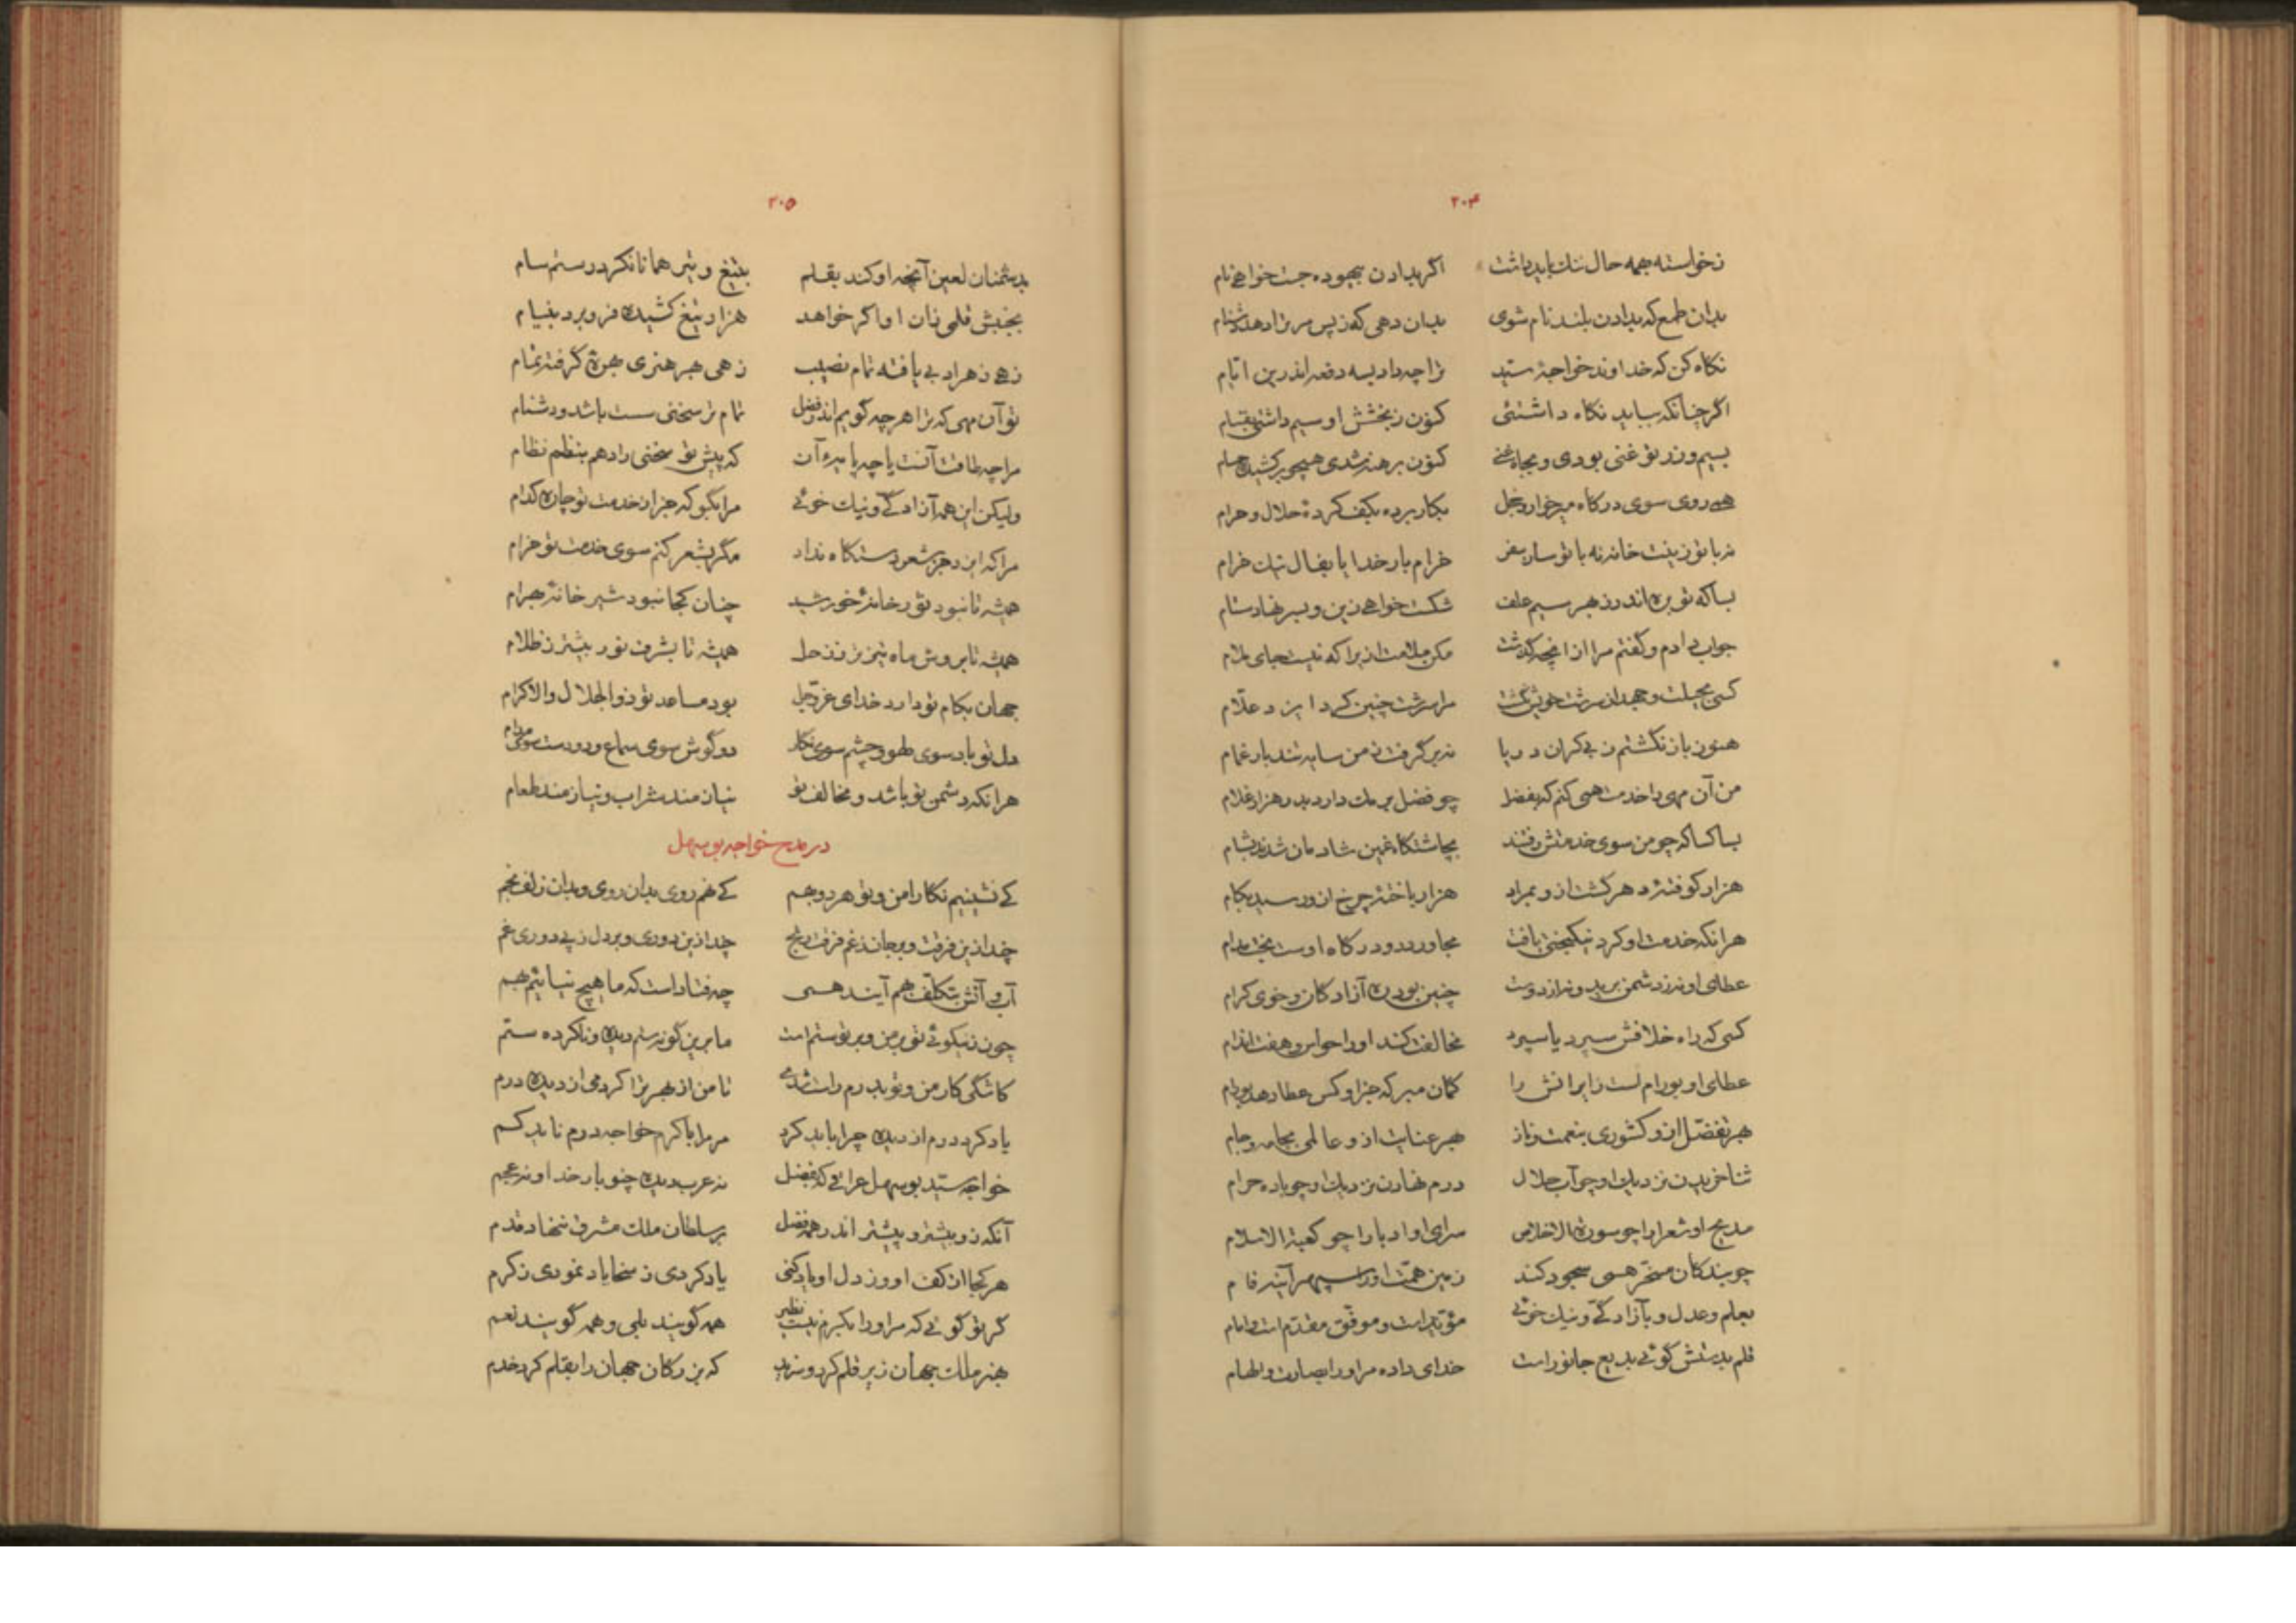 ۲۰۴
زخواسته همه حال نیک باید داشت اگر بدادن بیهوده جست خواهی نام
بدان طمع که بدادن بلند نام شوی بدان دهی که ز پس مر ترا دهد دشنام
نکاه کن که خداوند خواجهٔ سید ترا چه داد بسه دفعه اندرین ایام
اگر چنانکه بباید نکاه داشتئی کنون ز بخشش او سیم داشتی بقیام
بسیم وزر تو غنی بودی و بجاه غنی کنون برهنه شدی همچو برکشیده حسام
همی روی سوی درکاه میر خوار و خجل بکار برده بکف کردهٔ حلال و حرام
نه با تو زینت خانه نه با تو ساز سفر خرام بار خدایا بفال نیک خرام
بسا که تو بره اندر ز بهر سیم علف شکست خواهی زین و سپرد ستام
جواب دادم و گفتم مرا ازانچه گذشت مکن ملامت ازیرا که نیست جای ملام
کسی بحیلت و جهد از سرشت خویش نگشت مرا سرشت چنین کرد ایزد علام
هنوز باز نگشتم ز بی کران دریا نه بر گرفت ز من سایه تند بار غمام
من آن مهی را خدمت همی کنم که بفضل چو فضل برمک دارد بدر هزار غلام
بسا کسا که چو من سوی خدمتش رفتند بچاشتکاه غمین شادمان شدند بشام
هزار کوفتهٔ دهر کشت ازو بمراد هزار باختهٔ چرخ ازو رسید بکام
هرانکه خدمت او کرد نیکبختی یافت مجاور در درکاه اوست بخت مدام
عطای او نه ز دشمن برید و نه از دوست چنین بود ره آزادکان و خوی کرام
کسی که راه خلافش سپرد یا سپرد مخالفت کند او را حواس و هفت اندام
عطای او بوراملست زایرانش را کمان مبر که جز او کس عطا دهد بورام
بهر تفضل ازو کشوری بنعمت و ناز بهر عنایت ازو عالمی بجامه و جام
ثنا خریدن نزدیک او چو آب حلال درم نهادن نزدیک او چو باده حرام
مدیح او شعرا را چو سورة الاخلاص سرای او ادبا را چو کعبة الاسلام
چو بندکان مسخر همی سجود کند زمین همت او را سپهر آینه فام
بعلم و عدل و بآزادگی و نیک خوئی مؤید است و موفق مقدم است و امام
قلم بدستش گوئی بدیع جانورست خدای داده مر او را بصارت و الهام
۲۰۵
بدشمنان لعین آنچه او کند بقلم بتیغ و تیر همانا نکرد رستم سام
بجنبش قلمی زان او اگر خواهد هزار تیغ کشیده فرو برد بنیام
زهی ز هر ادبی یافته تمام نصیب زهی ز هر هنری بهره گرفته تمام
تو آن مهی که ترا هر چه گویم اندر فضل تمام تر سخنی سست باشد و دشنام
مرا چه طاقت آنست یا چه پایهٔ آن که پیش تو سخنی را دهم بنظم نظام
ولیکن این همه آزادگی و نیک خوئی مرا بگو که جز از خدمت تو چاره کدام
مرا که ایزد جز شعر دستکاه نداد مکر بشعر کنم سوی خدمت تو خرام
همیشه تا نبود ثور خانهٔ خورشید چنان کجا نبود شیر خانهٔ بهرام
همیشه تا بروش ماه تیزتر ز زحل همیشه تا بشرف نور بیشتر ز ظلام
جهان بکام تو داراد خدای عزوجل بود مساعد تو ذوالجلال والاکرام
دل تو باد سوی لهو و چشم سوی نکار دو گوش سوی سماع و دو دست سوی مدام
هرانکه دشمن تو باشد و مخالف تو نیازمند شراب و نیازمند طعام
در مدح خواجه بوسهل
کی نشینیم نکارا من و تو هر دو بهم کی نهم روی بدان روی و بدان زلف بخم
چند ازین فرقت و بر جان ز غم فرقت رنج چند ازین دوری و بر دل ز پی دوری غم
آب و آتش بتکلف بهم آیند همی چه فتاد است که ما هیچ نیائیم بهم
چون ز نیکوئی تو بر من و بر تو ستم است ما برین گونه ستم دیده و ناکرده ستم
کاشکی کار من و تو بدرم راست شدی تا من از بهر ترا کردمی از دیده درم
یاد کرد درم از دیده چرا باید کرد مر مرا با کرم خواجه درم ناید کم
خواجه سید بوسهل عراقی که بفضل نه عرب دیده چنو بار خدا و نه عجم
آنکه زو بیشتر و پیشتر اندر همه فضل بر سلطان ملک مشرق ننهاد قدم
هر کجا از کف او وز دل او یاد کنی یاد کردی ز سخا یاد نمودی ز کرم
گر تو گوئی که مر او را بکرم نیست نظیر همه گویند بلی و همه گویند نعم
بهنر ملک جهان زیر قلم کرد و سزید که بزرکان جهان را بقلم کرد خدم